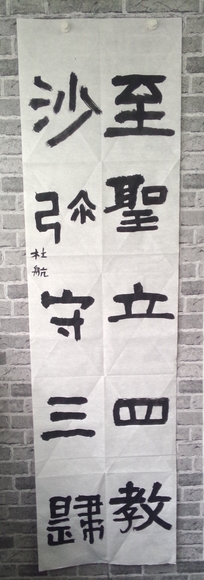 至聖立四教
沙弥守三歸
杜航